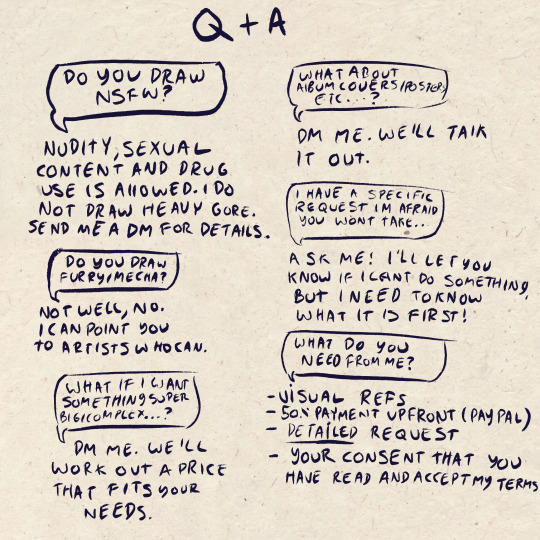 Q + A
DO YOU DRAW
NSFW?
NUDITY, SEXUAL
CONTENT AND DRUG
USE IS ALLOWED. I DO
NOT DRAW HEAVY GORE.
SEND ME A DM FOR DETAILS.
DO YOU DRAW
FURRY/MECHA?
NOT WELL, NO.
I CAN POINT YOU
TO ARTISTS WHO CAN.
WHAT IF I WANT
SOMETHING SUPER
BIG/COMPLEX...?
DM ME. WE'LL
WORK OUT A PRICE
THAT FITS YOUR
NEEDS.
WHAT ABOUT
ALBUM COVERS/POSTERS
ETC...?
DM ME. WE'LL TALK
IT OUT.
I HAVE A SPECIFIC
REQUEST IM AFRAID
YOU WONT TAKE...
ASK ME! I'LL LET YOU
KNOW IF I CANT DO SOMETHING,
BUT I NEED TO KNOW
WHAT IT IS FIRST!
WHAT DO YOU
NEED FROM ME?
- VISUAL REFS
- 50% PAYMENT UPFRONT (PAYPAL)
- DETAILED REQUEST
- YOUR CONSENT THAT YOU
HAVE READ AND ACCEPT MY TERMS